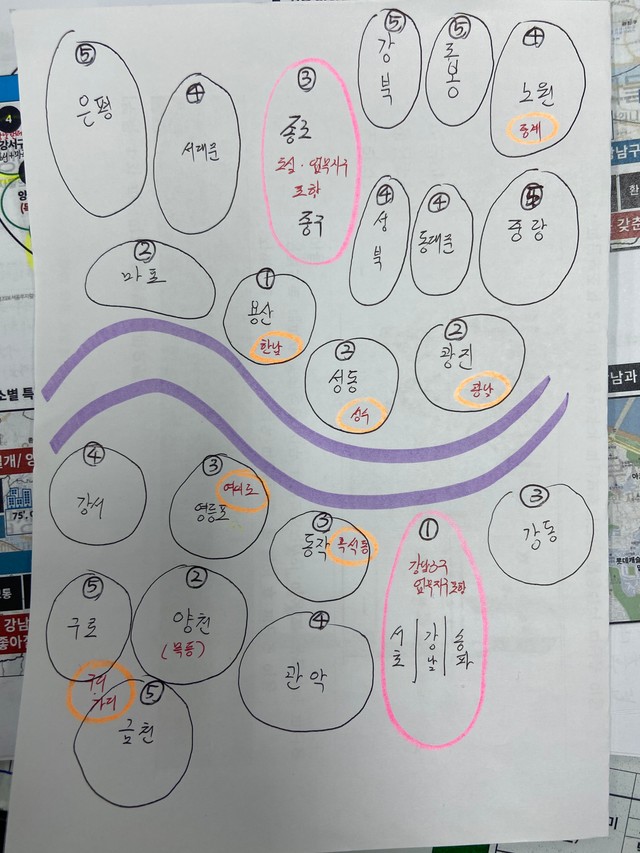 ⑤
은평
④
서대문
③
종로
도심·업무지구
포함
중구
⑤
강북
⑤
도봉
④
노원
중계
④
성북
④
동대문
중랑
②
마포
①
용산
한남
②
성동
성수
②
광진
광남
④
강서
③
여의도
영등포
③
동작 흑석동
①
강남3구
업무지구포함
서초 강남 송파
③
강동
⑤
구로
②
양천
(목동)
④
관악
구디
가디
⑤
금천
강서구
소별 특
남과
롯데캐슬
강남
좋아
갖춘
미